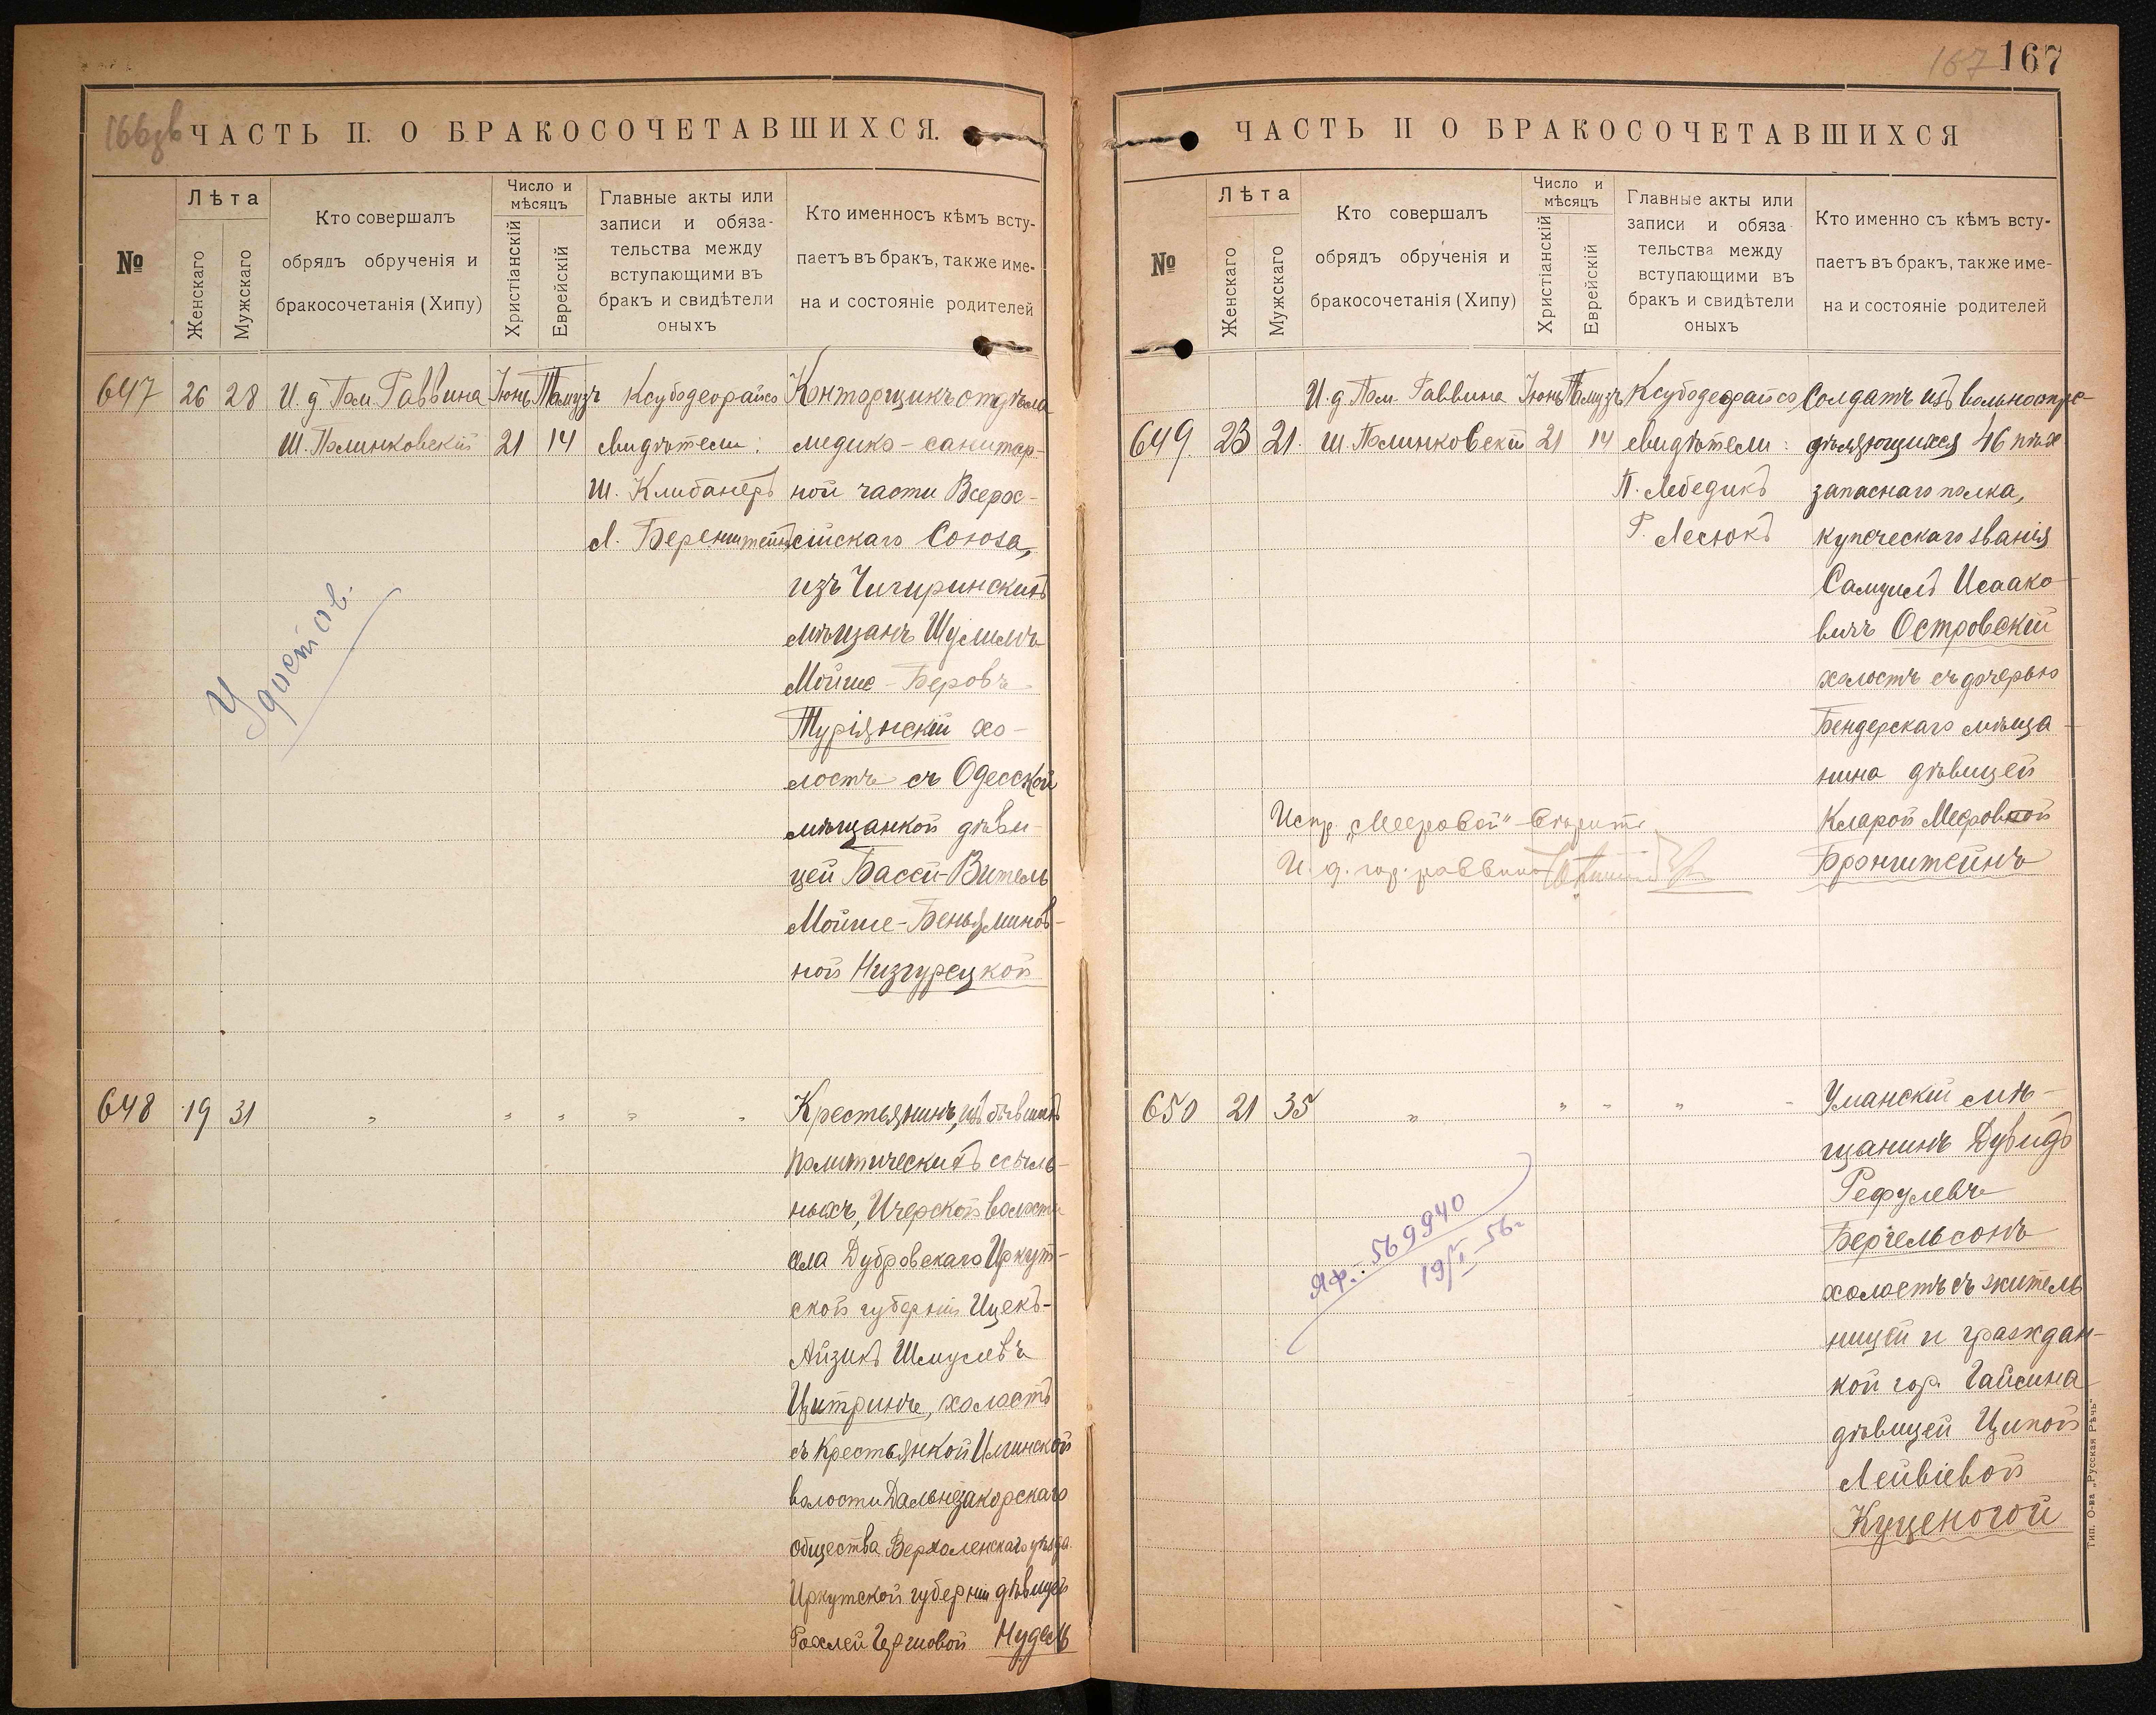 166зв
ЧАСТЬ II. О БРАКОСОЧЕТАВШИХСЯ.
№
Лѣта
Женскаго
Мужскаго
Кто совершалъ
обрядъ обрученія и
бракосочетанія (Хипу)
Число и
мѣсяцъ
Христіанскій
Еврейскій
Главные акты или
записи и обяза-
тельства между
вступающими въ
бракъ и свидѣтели
оныхъ
Кто именносъ кѣмъ всту-
паетъ въ бракъ, также име-
на и состояніе родителей
647 26 28 И. д. Пом. Раввина Іюнь Тамузъ Ксубодеорайсо Конторщикъ отдѣла
Ш. Полинковскій 21 14 свидѣтели: медико-санитар-
Ш. Клибанеръ ной части Всерос-
Л. Беренштейнъ сійскаго Союза,
изъ Чигиринскихъ
мѣщанъ Шулимъ
Мойше-Беровъ
Турянскій хо-
лостъ съ Одесской
мѣщанкой дѣви-
цей Басси-Витель
Мойше-Беньяминов-
ной Низгурецкой
Удостов.
648 19 31 „ „ „ „ „ Крестьянинъ, изъ бывшихъ
политическихъ ссыль-
ныхъ, Ичерской волости
села Дубровскаго Иркут-
ской губерніи Ицекъ-
Айзикъ Шмулевъ
Цитринъ, холостъ
съ крестьянкой Илгинской
волости Дальнезакорскаго
общества Верхоленскаго уѣзда
Иркутской губерніи дѣвицей
Рохлей Гершовой Нудель
167 167
ЧАСТЬ II О БРАКОСОЧЕТАВШИХСЯ
№
Лѣта
Женскаго
Мужскаго
Кто совершалъ
обрядъ обрученія и
бракосочетанія (Хипу)
Число и
мѣсяцъ
Христіанскій
Еврейскій
Главные акты или
записи и обяза
тельства между
вступающими въ
бракъ и свидѣтели
оныхъ
Кто именно съ кѣмъ всту-
паетъ въ бракъ, также име-
на и состояніе родителей
И. д. Пом. Раввина Іюнь Тамузъ Ксубодеорайсо Солдатъ изъ вольноопре-
649. 23 21. Ш. Полинковскій 21 14 свидѣтели: дѣляющихся 46 пѣх
П. Лебедикъ запаснаго полка,
Г. Лесюкъ купеческаго званія
Самуилъ Исаако-
вичъ Островскій
холостъ съ дочерью
Бендерскаго мѣща-
нина дѣвицей
Кларой Мееровной
Бронштейнъ
Испр. „Мееровой" вѣрить
И. д. гор. раввина
650 21 35 „ „ „ „ „ Уманскій мѣ-
щанинъ Дувидъ
Рефулевъ
Бергельсонъ
холостъ съ житель
ницей и граждан-
кой гор. Гайсина
дѣвицей Ципой
Лейвіевой
Куценогой
ЯФ.: 569940
19/I 56г
Тип. О-ва „Русская Рѣчь"